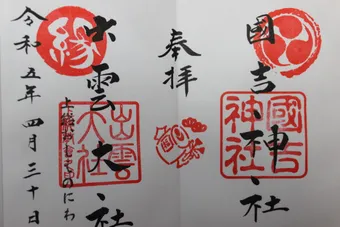 國吉神社
國吉神社
奉拝
出雲大社
出雲大社
縁
令和五年四月三十日